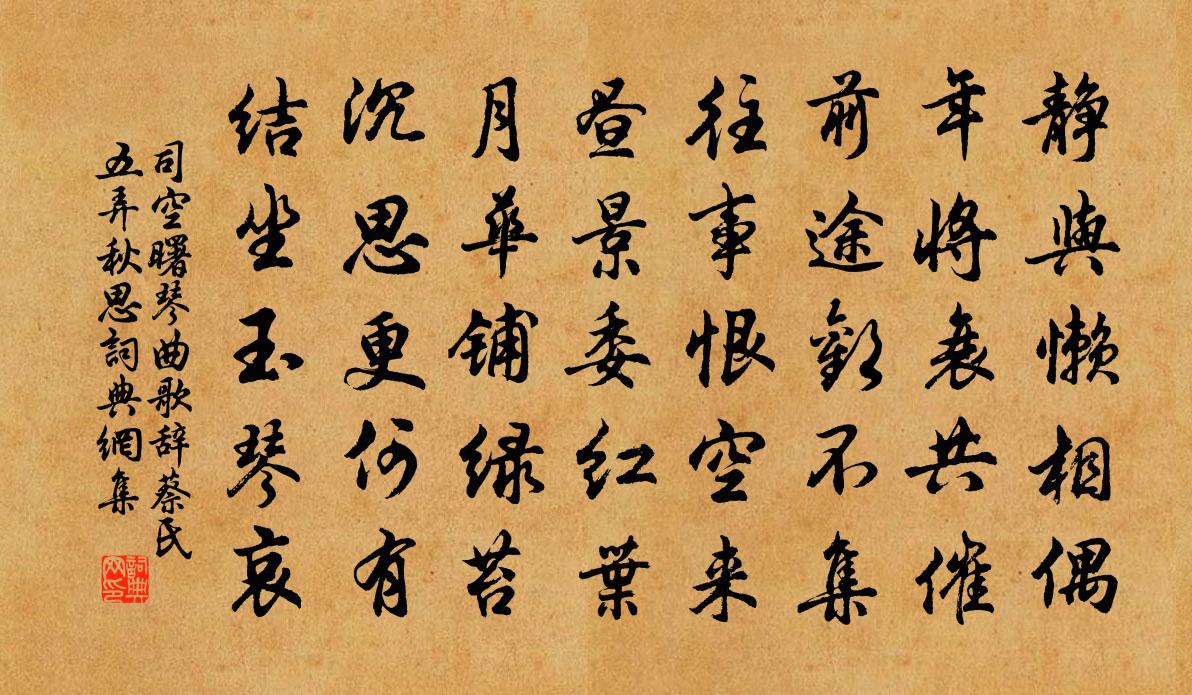 静與懒相偶
年将衰共催
前途歡不集
往事恨空来
昼景委红葉
月華铺绿苔
沉思更何有
结坐玉琴哀
司空曙琴曲歌辞蔡氏
五弄秋思詞典網集
詞典
网印